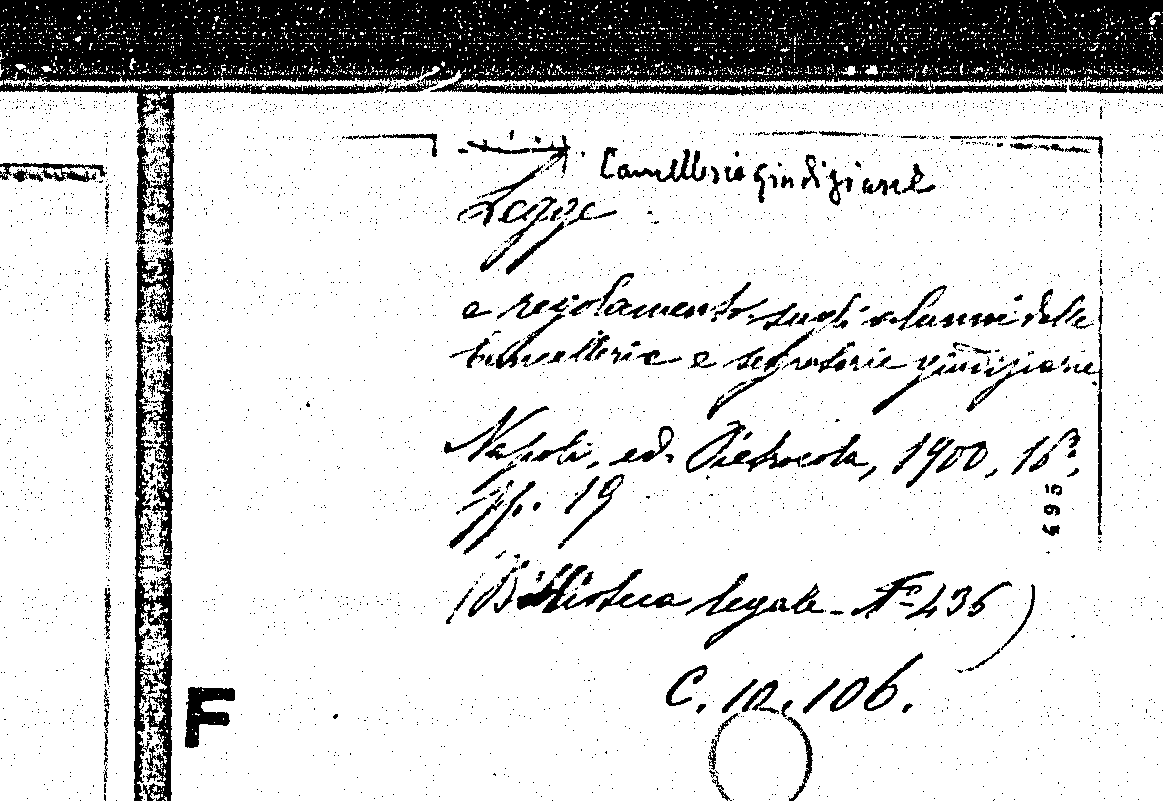 Cancellerie giudiziarie
Legge
e regolamento sugli alunni delle
cancellerie e segreterie giudiziarie.
Napoli, ed. Pietrocola, 1900, 16°,
pp. 19
695
(Biblioteca legale - N° 436)
C. 10. 106.
F